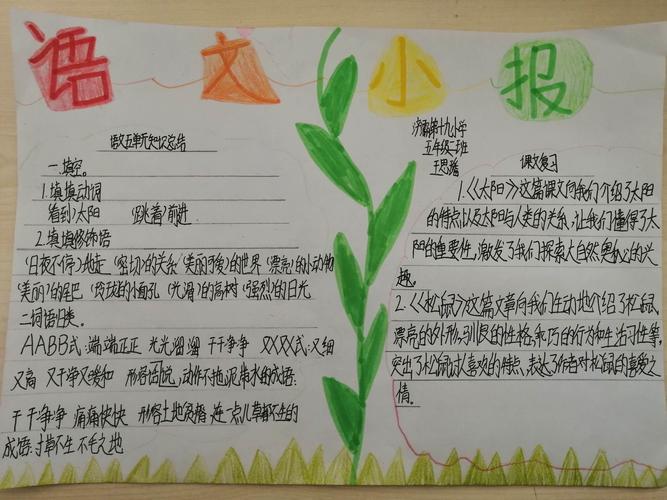 语文小报
语文五单元知识总结
一.填空。
1.填填动词
(看到)太阳 (跳着)前进
2.填填修饰语
(日夜不停)地走 (密切)的关系 (美丽可爱)的世界 (漂亮)的小动物
(美丽)的尾巴 (玲珑)的小面孔 (光滑)的高树 (强烈)的日光
二.词语归类。
AABB式:端端正正 光光溜溜 干干净净 又X又X式:又细
又高 又干净又暖和 形容说话,动作不拖泥带水的成语:
干干净净 痛痛快快 形容土地贫瘠 连一点儿草都不生的
成语:寸草不生 不毛之地
第十九小学
五年级二班
课文复习
1.《太阳》这篇课文向我们介绍了太阳
的特点以及太阳与人类的关系,让我们懂得了太
阳的重要性,激发了我们探索大自然奥秘的兴
趣。
2.《松鼠》这篇文章向我们生动地介绍了松鼠,
漂亮的外形,驯良的性格,乖巧的行为和生活习性等,
突出了松鼠讨人喜欢的特点,表达了作者对松鼠的喜爱之
情。